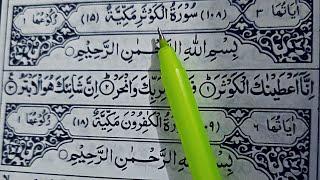 اٰیَاتُهَا ٣ (١٠٨) سُوْرَةُ الْكَوْثَرِ مَكِّيَّةٌ (١٥) رُكُوْعُهَا ١
بِسْمِ اللّٰهِ الرَّحْمٰنِ الرَّحِيْمِ
اِنَّاۤ اَعْطَيْنٰكَ الْكَوْثَرَ لِرَبِّكَ وَانْحَرْ اِنَّ شَانِئَكَ هُوَ الْاَبْتَرُ
اٰیَاتُهَا ٦ سُوْرَةُ الْكٰفِرُوْنَ مَكِّيَّةٌ (١٨) رُكُوْعُهَا ١
بِسْمِ اللّٰهِ الرَّحْمٰنِ الرَّحِيْمِ